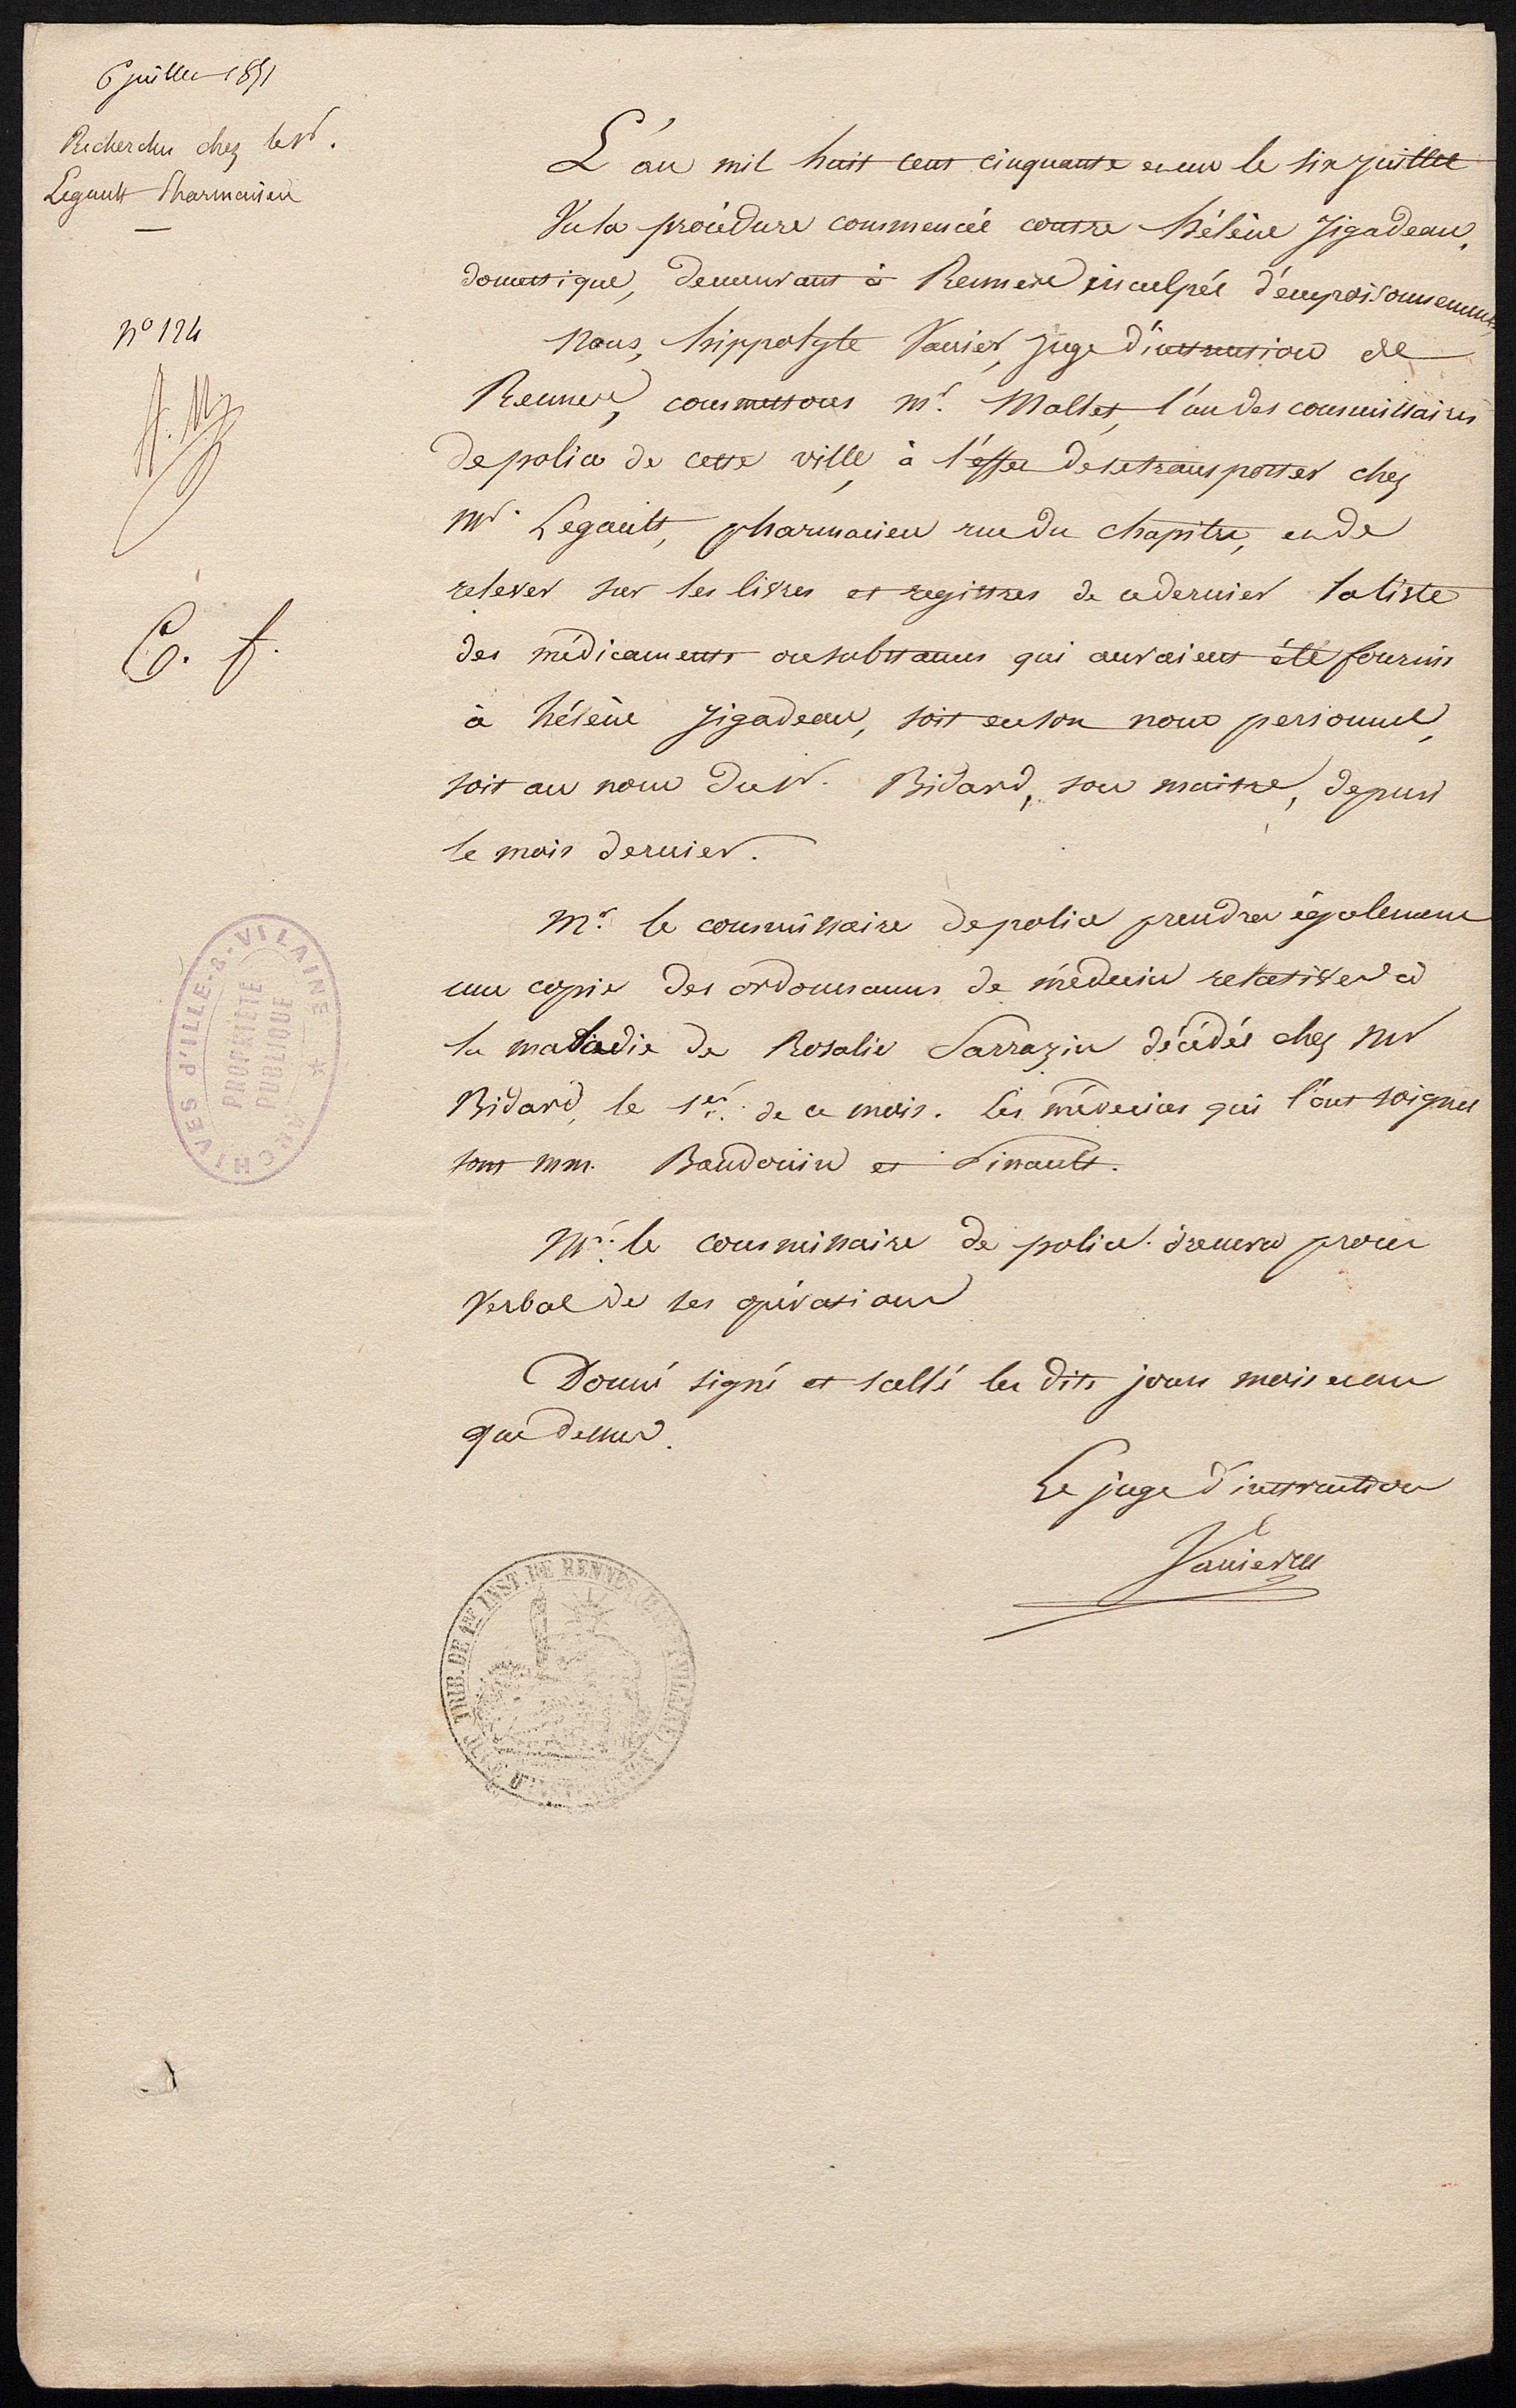 6 juillet 1851
Recherches chez le Sr.
Legault Pharmacien
n° 124
C. f.
L'an mil huit cent cinquante et un le six juillet
Vu la procédure commencée contre hélène Jigadeau,
domestique, demeurant à Rennes inculpée d'empoisonnement,
Nous, hippolyte Vanier, juge d'instruction de
Rennes, commettons Mr. Maltet, l'un des commissaires
de police de cette ville, à l'effet de se transporter chez
Mr. Legault, pharmacien rue du chapitre, et de
relever sur les livres et registres de ce dernier la liste
des médicaments ou substances qui auraient été fournis
à hélène Jigadeau, soit en son nom personnel,
soit au nom du Sr. Bidard, son maitre, depuis
le mois dernier.
Mr. le commissaire de police prendra également
une copie des ordonnances de médecin relatives à
la maladie de Rosalie Sarrazin décédée chez Mr
Bidard, le 1er. de ce mois. Les médecins qui l'ont soignée
sont MM. Baudouin et Pinault.
Mr. le commissaire de police dressera procès
verbal de ses opérations
Donné signé et scellé les dits jour mois et an
que dessus.
Le juge d'instruction
Vanier
ARCHIVES d'ILLE-&-VILAINE
PROPRIÉTÉ
PUBLIQUE
TRIB. DE 1ER INST. DE RENNES